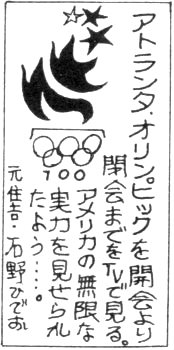 アトランタ.オリンピックを開会より
閉会までをTVで見る。
アメリカの無限な
実力を見せられ
たよう・・・・。
元住吉・石野ひでお
100